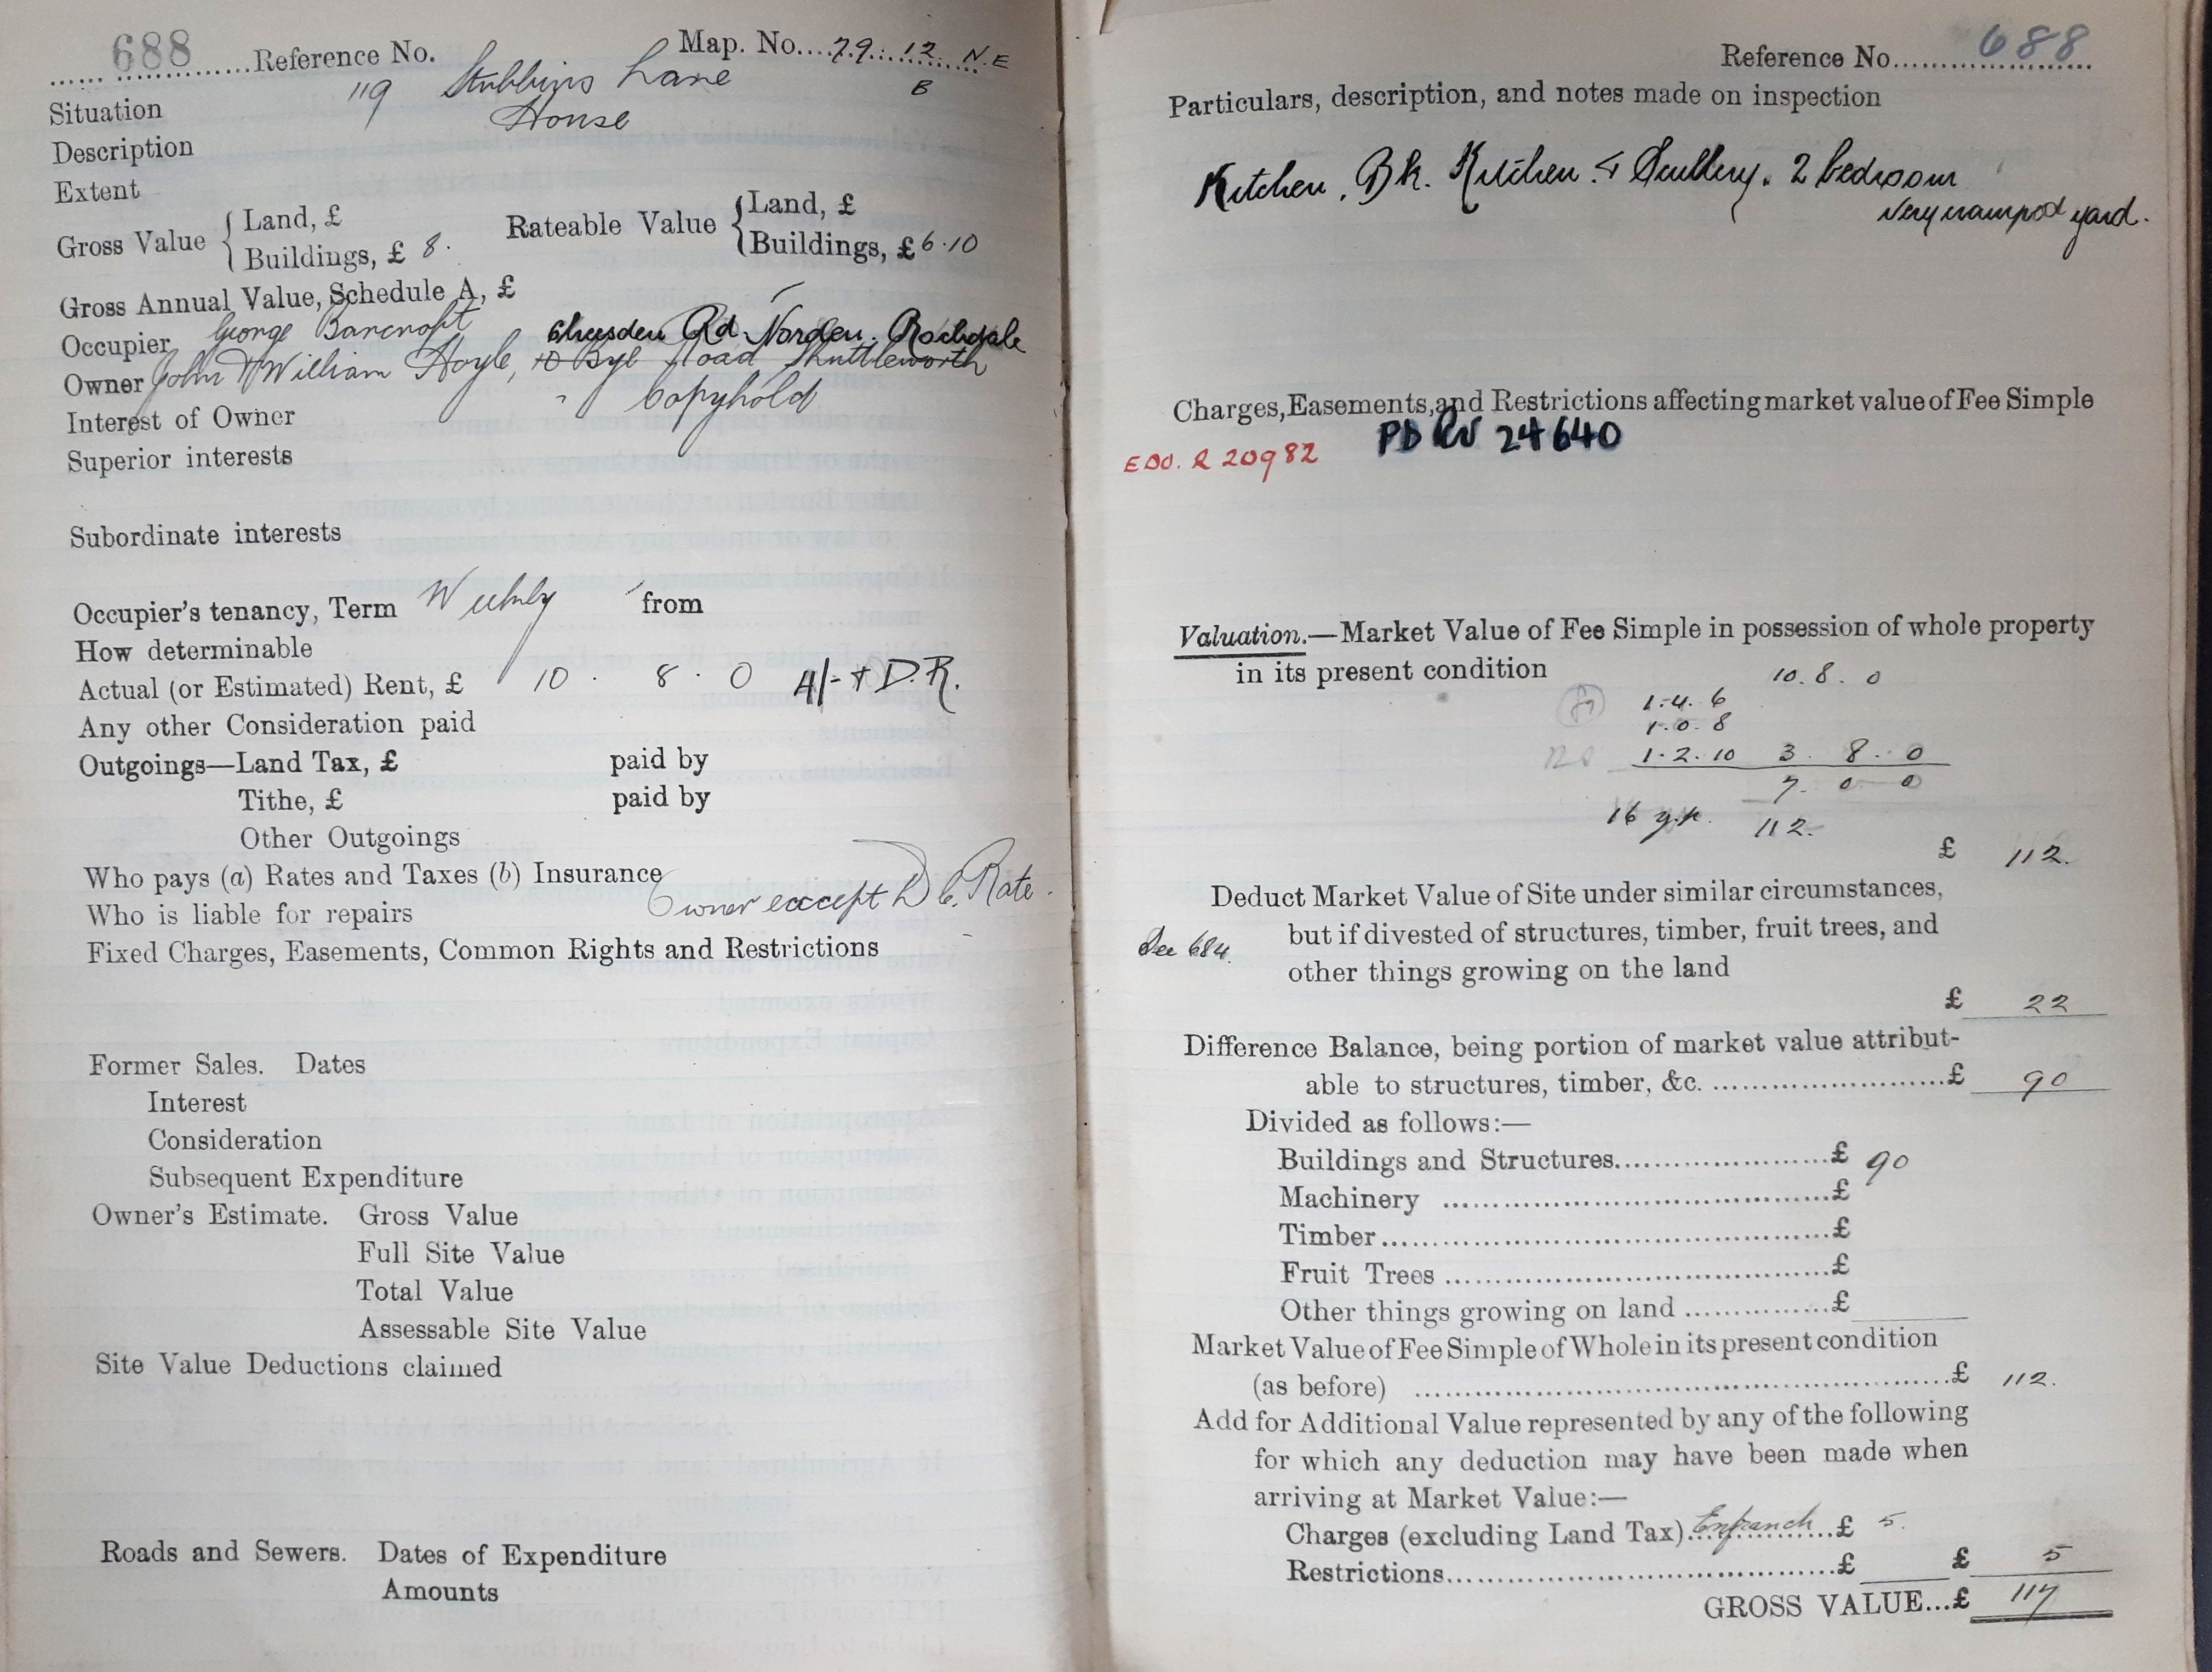 688 Reference No. Map. No. 79. 12. N.E
B
Situation 119 Stubbins Lane
Description House
Extent
Gross Value { Land, £
Buildings, £ 8.
Rateable Value { Land, £
Buildings, £ 6.10
Gross Annual Value, Schedule A, £
Occupier George Bancroft
Rd. Norden. Rochdale
Owner John & William Hoyle, 10 Bye Road Shuttleworth
Interest of Owner Copyhold
Superior interests
Subordinate interests
Occupier's tenancy, Term Weekly from
How determinable
Actual (or Estimated) Rent, £ 10 . 8 . 0 4/- + D.R.
Any other Consideration paid
Outgoings—Land Tax, £ paid by
Tithe, £ paid by
Other Outgoings
Who pays (a) Rates and Taxes (b) Insurance
Who is liable for repairs Owner except D.C. Rate.
Fixed Charges, Easements, Common Rights and Restrictions
Former Sales. Dates
Interest
Consideration
Subsequent Expenditure
Owner's Estimate. Gross Value
Full Site Value
Total Value
Assessable Site Value
Site Value Deductions claimed
Roads and Sewers. Dates of Expenditure
Amounts
Reference No. 688
Particulars, description, and notes made on inspection
Kitchen, Bk. Kitchen & Scullery. 2 bedroom
Very cramped yard.
Charges, Easements, and Restrictions affecting market value of Fee Simple
PD RV 24640
EDO. R 20982
Valuation.—Market Value of Fee Simple in possession of whole property
in its present condition
10. 8. 0
1.4.6
1.0.8
1.2.10 3. 8. 0
7. 0 0
16 y.p. 112.
£ 112.
Deduct Market Value of Site under similar circumstances,
but if divested of structures, timber, fruit trees, and
See 684.
other things growing on the land
£ 22
Difference Balance, being portion of market value attribut-
able to structures, timber, &c. £ 90
Divided as follows:—
Buildings and Structures £ 90
Machinery £
Timber £
Fruit Trees £
Other things growing on land £
Market Value of Fee Simple of Whole in its present condition
(as before) £ 112.
Add for Additional Value represented by any of the following
for which any deduction may have been made when
arriving at Market Value:—
Charges (excluding Land Tax) Enfranch £ 5.
Restrictions £ £ 5
GROSS VALUE...£ 117